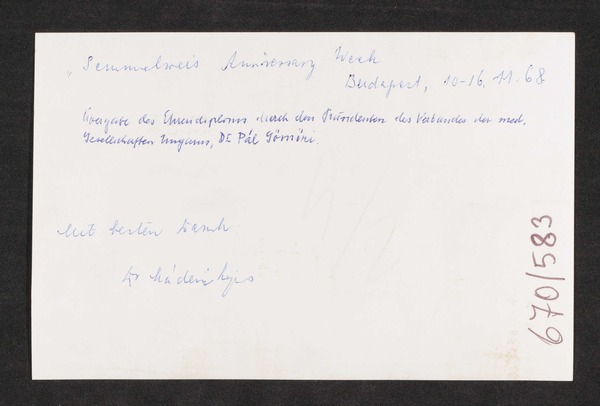 „Semmelweis Anniversary Week
Budapest, 10-16. 11. 68
Übergabe des Ehrendiploms durch den Präsidenten des Verbandes der med.
Gesellschaften Ungarns, Dr Pál Gömöri.
Mit besten Dank
Dr
670/583